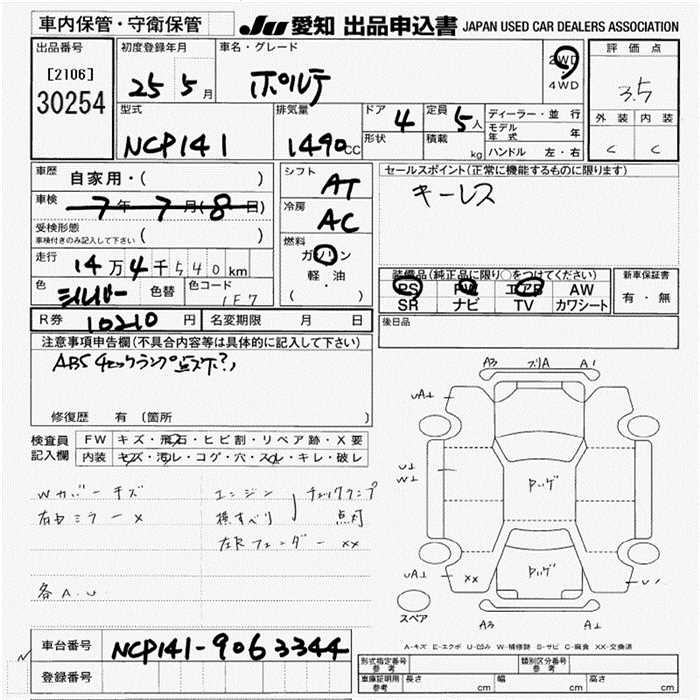 車内保管・守衛保管
JU 愛知 出品申込書 JAPAN USED CAR DEALERS ASSOCIATION
出品番号
[2106]
30254
初度登録年月
25 5月
車名・グレード
ポルテ
2WD
4WD
評価点
3.5
外装 内装
C C
型式
NCP141
排気量
1490CC
ドア 4
形状
定員 5人
積載 kg
ディーラー・並行
モデル年式 年
ハンドル 左・右
車歴
自家用・( )
車検
7年7月(8日)
受検形態
車検付きのみ記入して下さい ( )
走行
14万4千540km
色
シルバー
色替
色コード
1F7
シフト
AT
冷房
AC
燃料
ガソリン
軽・油
( )
セールスポイント(正常に機能するものに限ります)
キーレス
装備品(純正品に限り○をつけてください)
PS PW エアB AW
SR ナビ TV カワシート
新車保証書
有・無
後日品
R券 10210円
名変期限 月 日
注意事項申告欄(不具合内容等は具体的に記入して下さい)
修復歴 有 (箇所 )
検査員
記入欄
FW キズ・飛石・ヒビ割・リペア跡・X要
内装 キズ・汚レ・コゲ・穴・スレ・キレ・破レ
Wカバーキズ
右ドミラーX
エンジン
横すべり
チェックランプ
点灯
左Rフェンダー XX
各A.U
A3 フリA A1
UA⊥
U⊥
W⊥
Rハゲ
Rハゲ
UA⊥ XX
U'
スペア
A3 A⊥
A-キズ E-エクボ U-凹み W-補修跡 S-サビ C-腐食 XX-交換済
車台番号
NCP141-9063344
登録番号
型式指定番号
参考
類別区分番号
参考
車庫証明用
参考
長さ cm
幅 cm
高さ cm